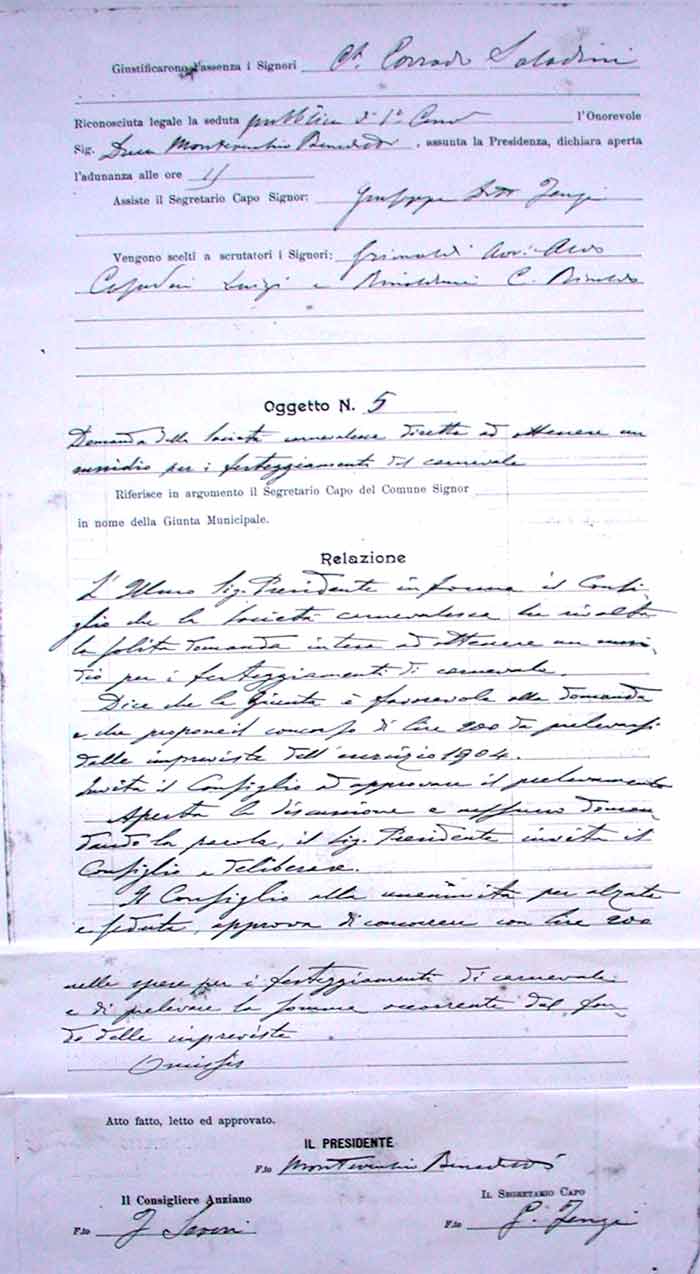 Giustificarono l'assenza i Signori Ct. Corrado Saladini
Riconosciuta legale la seduta pubblica di 1a Conv l'Onorevole
Sig. Duca Montevecchio Benedetto, assunta la Presidenza, dichiara aperta
l'adunanza alle ore
Assiste il Segretario Capo Signor: Giuseppe Dott Zenzi
Vengono scelti a scrutatori i Signori: Grinaldi Avv.
Luigi e Rinalducci C. Rinaldo
Oggetto N. 5
Domanda della Società carnevalesca diretta ad ottenere un
sussidio per i festeggiamenti del carnevale
Riferisce in argomento il Segretario Capo del Comune Signor
in nome della Giunta Municipale.
Relazione
L'Illmo Sig. Presidente informa il Consi-
glio che la Società carnevalesca ha rivolta
la solita domanda intesa ad ottenere un sussi-
dio per i festeggiamenti di carnevale.
Dice che la Giunta è favorevole alla domanda
e che propone il concorso di lire 200 da prelevarsi
dalle impreviste dell'esercizio 1904.
Invita il Consiglio ad approvare il prelevamento
Aperta la discussione e nessuno doman-
dando la parola, il Sig. Presidente invita il
Consiglio a deliberare.
Il Consiglio alla unanimità per alzata
e seduta, approva di concorrere con lire 200
nelle spese per i festeggiamenti di carnevale
e di prelevare la somma occorrente dal fon-
do delle impreviste
Omissis
Atto fatto, letto ed approvato.
IL PRESIDENTE
F.to Montevecchio Benedetto
Il Consigliere Anziano
IL SEGRETARIO CAPO
F.to J. Severi
F.to G. Zenzi